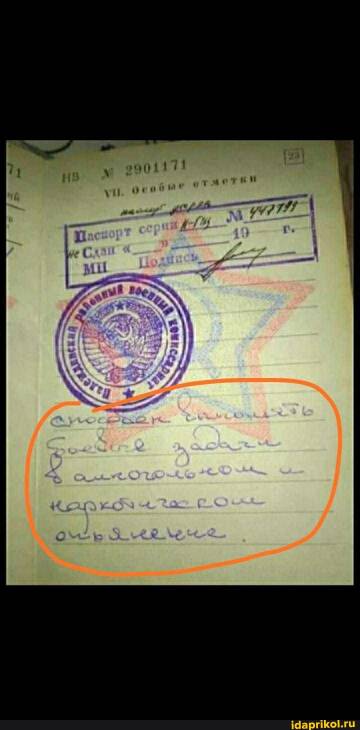 НВ № 2901171
23
VII. Особые отметки
Паспорт серии № 447793
не Сдан « » 19 г.
МП Подпись
районный военный комиссариат
способен выполнять
боевые задачи
в алкогольном и
наркотическом
опьянение.
idaprikol.ru